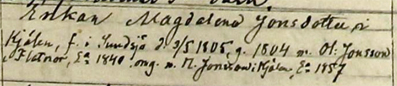 Enkan Magdalena Jonsdotter i
Kjälen, f. i Sundsjö d. 3/5 1805, g. 1804 m. Ol. Jonsson
i Flatnor, Ea 1840 omg. m. N. Jonsson i Kjälen, Ea 1857